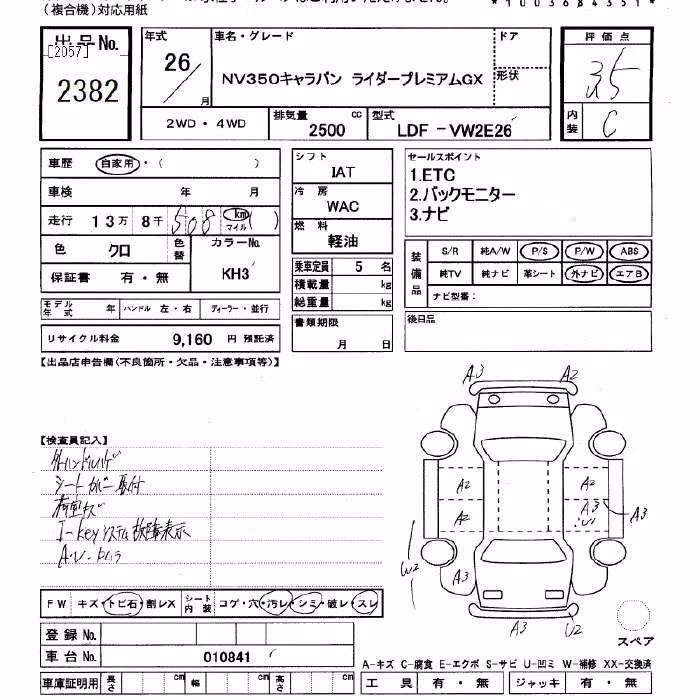 （複合機）対応用紙
*1003684351*
出品No.
[2057]
2382
年式
26/
月
車名・グレード
NV350キャラバン ライダープレミアムGX
ドア
形状
2WD・4WD
排気量
2500
cc
型式
LDF-VW2E26
評価点
3.5
内装
C
車歴 自家用・( )
車検 年 月
走行 13万 8千 508 km マイル ( )
色 クロ
色替
カラーNo.
KH3
保証書 有・無
モデル年式 年 ハンドル 左・右 ディーラー・並行
リサイクル料金 9,160 円 預託済
シフト
IAT
冷房
WAC
燃料
軽油
乗車定員 5 名
積載量 kg
総重量 kg
書類期限
月 日
セールスポイント
1.ETC
2.バックモニター
3.ナビ
装備品
S/R 純A/W P/S P/W ABS
純TV 純ナビ 革シート 外ナビ エアB
ナビ型番：
後日品
【出品店申告欄(不良箇所・欠品・注意事項等)】
【検査員記入】
シートカバー取付
荷室キズ
I-keyシステム故障表示
A3 A2
A2 A2
A2 A3 U1 A3
W2
A3
A3 U2
スペア
FW キズ・トビ石・割レX
シート内装 コゲ・穴・汚レ・シミ・破レ・スレ
登録No.
車台No. 010841
車庫証明用 長さ cm 幅 cm 高さ cm
A-キズ C-腐食 E-エクボ S-サビ U-凹ミ W-補修 XX-交換済
工具 有・無 ジャッキ 有・無